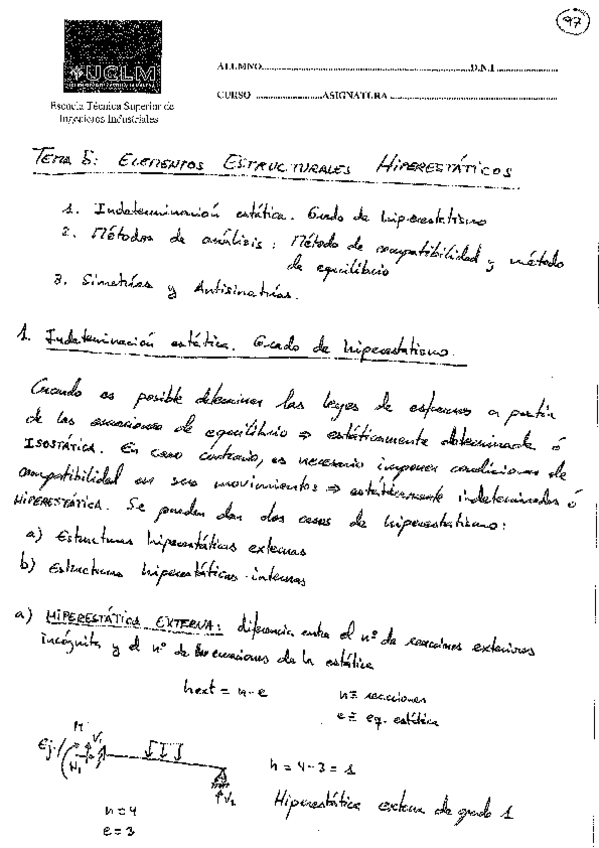 97
UCLM
Escuela Técnica Superior de
Ingenieros Industriales
ALUMNO D.N.I
CURSO ASIGNATURA
TEMA 5: ELEMENTOS ESTRUCTURALES HIPERESTÁTICOS
1. Indeterminación estática. Grado de hiperestatismo
2. Métodos de análisis: Método de compatibilidad y método
de equilibrio
3. Simetrías y Antisimetrías.
1. Indeterminación estática. Grado de hiperestatismo.
Cuando es posible determinar las leyes de esfuerzos a partir
de las ecuaciones de equilibrio ⇒ estáticamente determinada ó
ISOSTÁTICA. En caso contrario, es necesario imponer condiciones de
compatibilidad en sus movimientos ⇒ estáticamente indeterminadas ó
HIPERESTÁTICA. Se pueden dar dos casos de hiperestatismo:
a) Estructuras hiperestáticas externas
b) Estructuras hiperestáticas internas
a) HIPERESTÁTICA EXTERNA: diferencia entre el nº de reacciones exteriores
incógnita y el nº de ecuaciones de la estática
hext = n - e
n ≡ reacciones
e ≡ eq. estática
Ej./
M
V1
H1
V2
h = 4-3 = 1
Hiperestática externa de grado 1
n = 4
e = 3